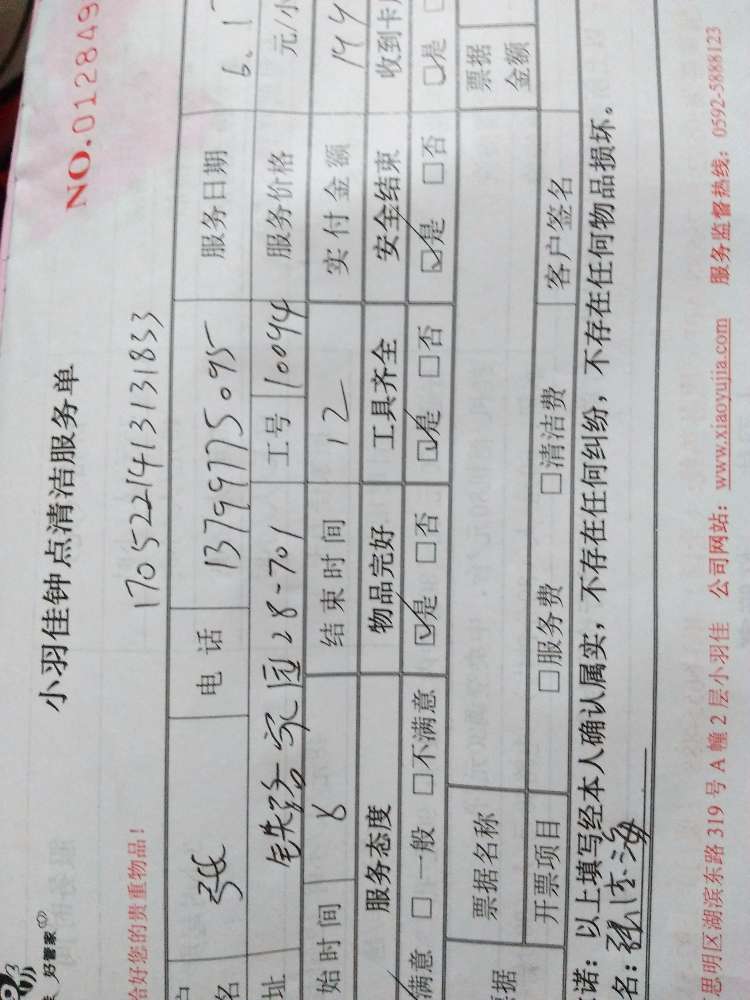 好管家
小羽佳钟点清洁服务单
NO.012849
好您的贵重物品!
1705221413131853
名 张 电话 13799775095 服务日期 6.1
址 铁路家园28-701 工号 10094 服务价格 元/小
始时间 8 结束时间 12 实付金额 144
服务态度 物品完好 工具齐全 安全结束 收到卡
满意 □一般 □不满意 ☑是 □否 ☑是 □否 ☑是 □否 □是
票据名称 票据金额
据 开票项目 □服务费 □清洁费 客户签名
诺：以上填写经本人确认属实，不存在任何纠纷，不存在任何物品损坏。
名：张
思明区湖滨东路 319 号 A 幢 2 层小羽佳 公司网站：www.xiaoyujia.com 服务监督热线：0592-5888123